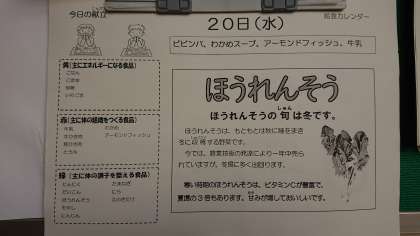 今日の献立
給食カレンダー
20日(水)
ビビンバ、わかめスープ、アーモンドフィッシュ、牛乳
黄(主にエネルギーになる食品)
ごはん
ごま油
砂糖
赤(主に体の組織をつくる食品)
牛乳 わかめ
アーモンドフィッシュ
緑(主に体の調子を整える食品)
にんにく たまねぎ
だいこん にら
ほうれんそう えのきたけ
もやし
にんじん
ほうれんそう
しゅん
ほうれんそうの旬は冬です。
ほうれんそうは、もともとは秋に種をまき
冬に収穫する野菜です。
今では、農業技術の発達により一年中売ら
れていますが、冬場に多く出回ります。
寒い時期のほうれんそうは、ビタミンCが豊富で、
夏場の3倍もあります。甘みが増しておいしいです。